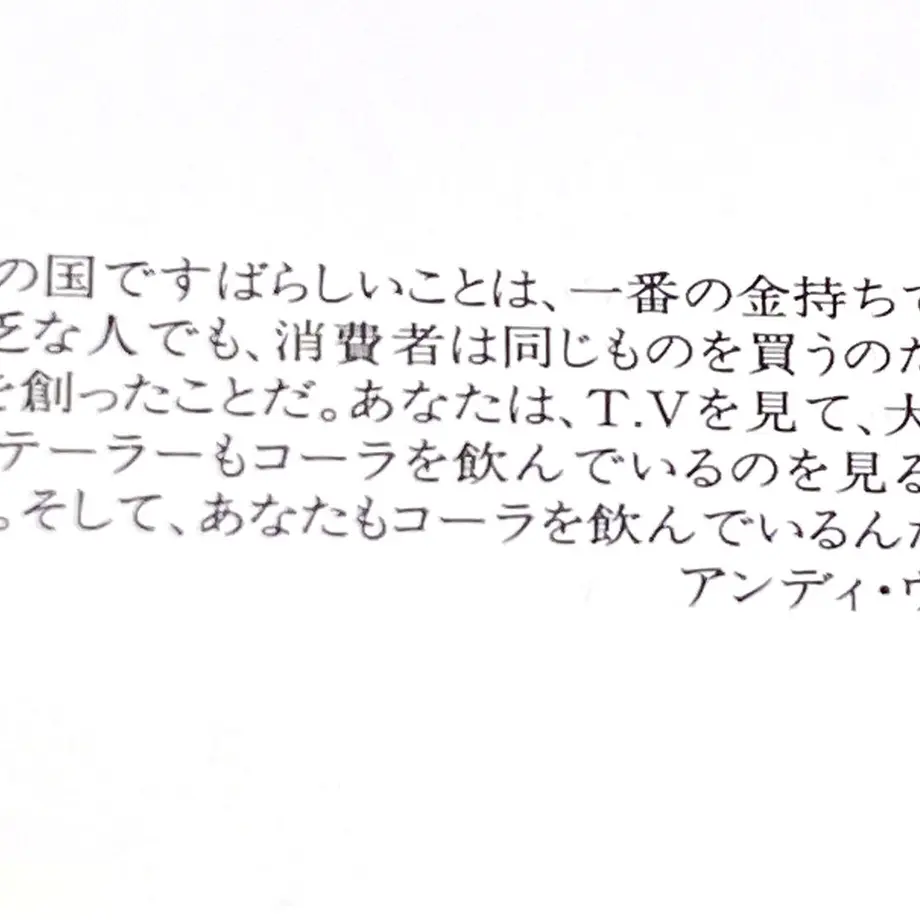 の国ですばらしいことは、一番の金持ち
乏な人でも、消費者は同じものを買うのだ
を創ったことだ。あなたは、T.Vを見て、大
テーラーもコーラを飲んでいるのを見る
。そして、あなたもコーラを飲んでいるんだ
アンディ・ウ